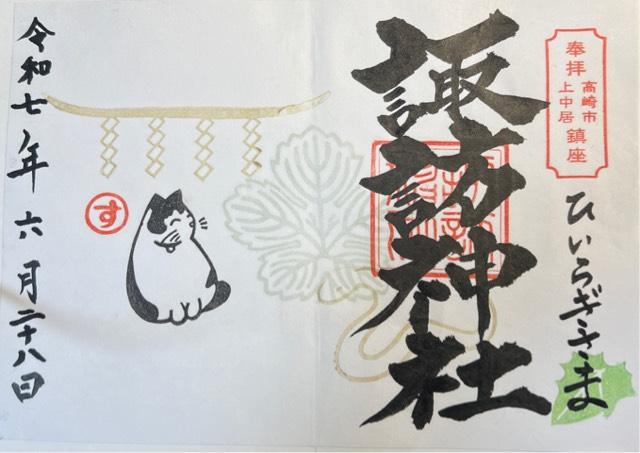 奉拝
高崎市
上中居
鎮座
ひいらぎさま
諏訪神社
す
令和七年六月二十八日